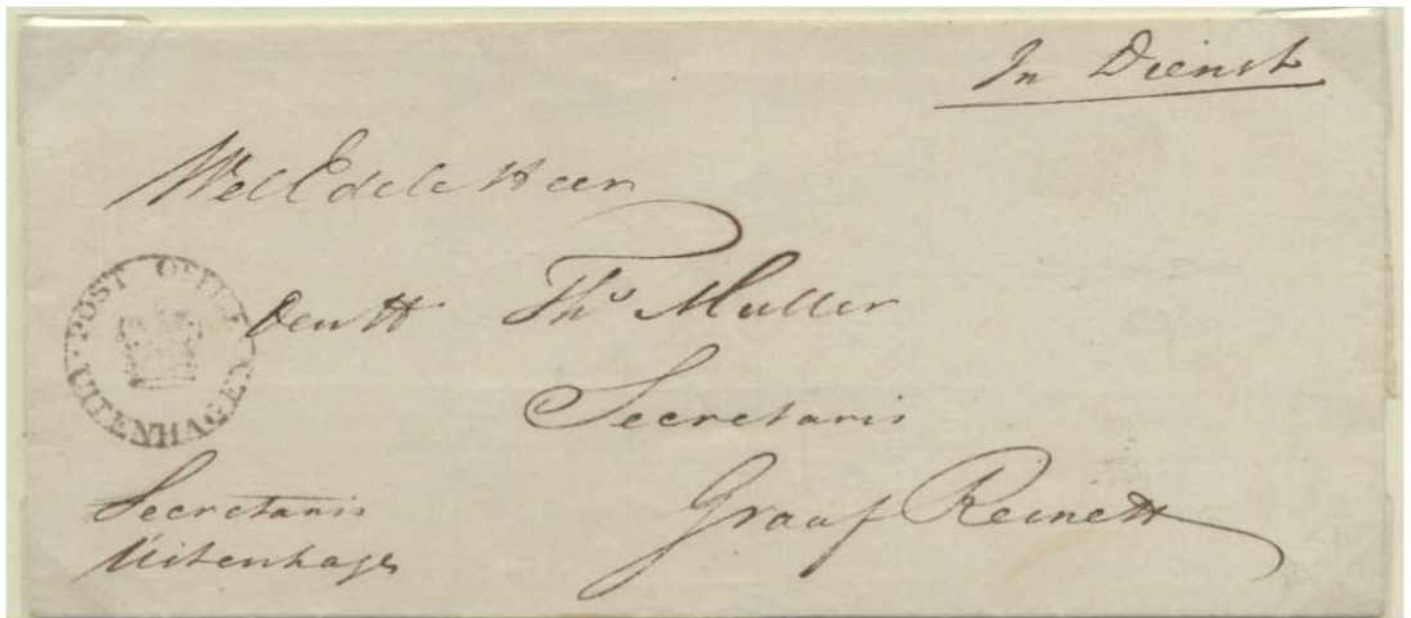 In Dienst
Wel Edele Heer
POST OFFICE
UITENHAGEN
den H Ths Muller
Secretaris
Graaf Reinett
Secretaris
Uitenhage